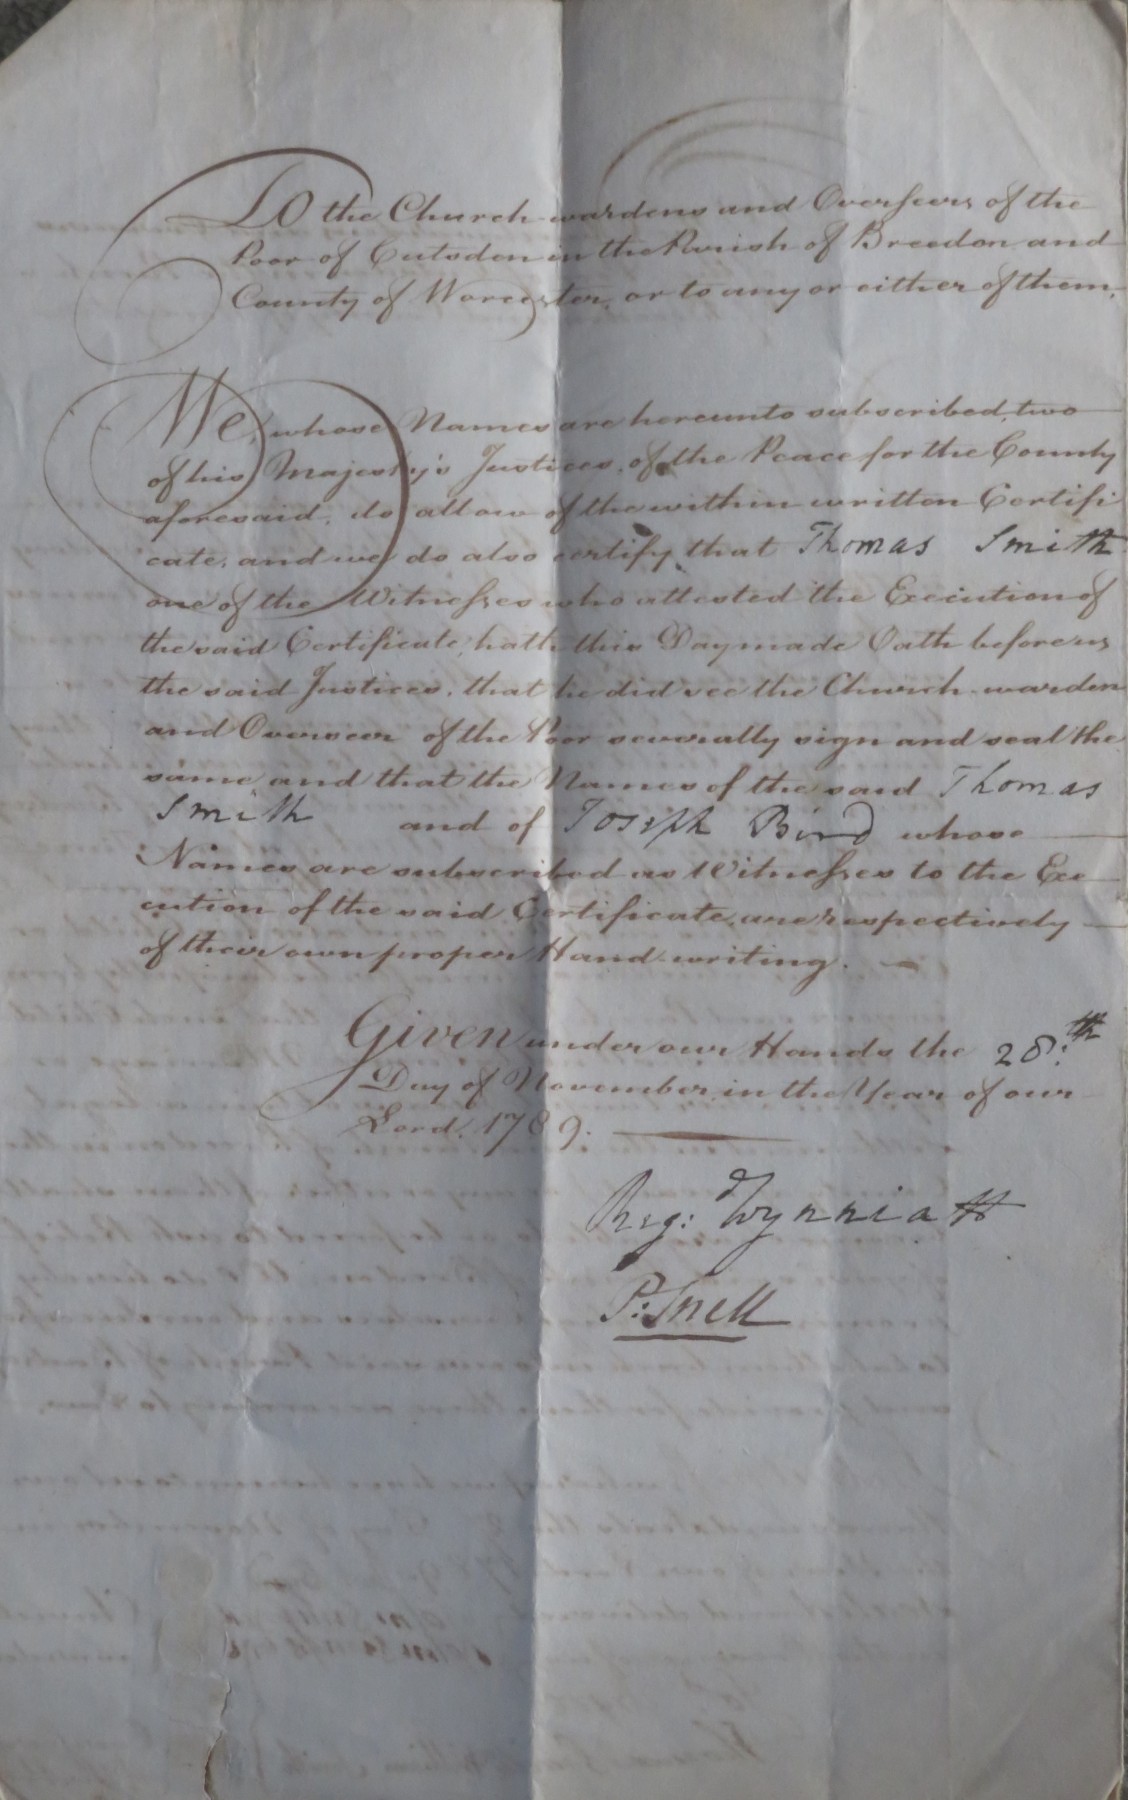 To the Church-wardens and Overseers of the
Poor of Cutsden in the Parish of Breedon and
County of Worcester, or to any or either of them.
We, whose Names are hereunto subscribed, two
of his Majesty's Justices, of the Peace for the County
aforesaid, do allow of the within written Certifi
cate, and we do also certify that Thomas Smith
one of the Witnesses who attested the Execution of
the said Certificate, hath this Day made Oath before us
the said Justices, that he did see the Church-warden
and Overseer of the Poor severally sign and seal the
same and that the Names of the said Thomas
Smith and of Joseph Bird whose
Names are subscribed as Witnesses to the Exe
cution of the said Certificate, are respectively
of their own proper Hand-writing.
Given under our Hands the 28th
Day of November, in the Year of our
Lord, 1789.
Reg: Wynniatt
P: Snell